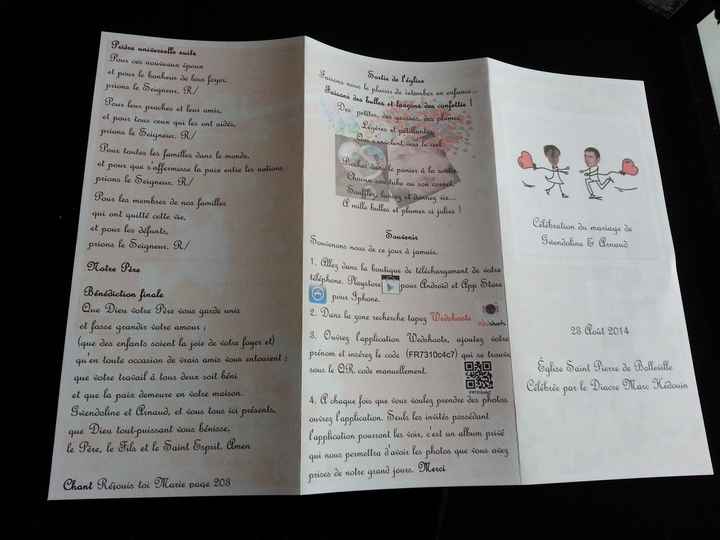 Prière universelle suite
Pour ces nouveaux époux
et pour le bonheur de leur foyer,
prions le Seigneur. R/
Pour leurs proches et leurs amis,
et pour tous ceux qui les ont aidés,
prions le Seigneur. R/
Pour toutes les familles dans le monde,
et pour que s'affermisse la paix entre les nations
prions le Seigneur. R/
Pour les membres de nos familles
qui ont quitté cette vie,
et pour les défunts,
prions le Seigneur. R/
Notre Père
Bénédiction finale
Que Dieu votre Père vous garde unis
et fasse grandir votre amour ;
(que des enfants soient la joie de votre foyer et)
qu'en toute occasion de vrais amis vous entourent :
que votre travail à tous deux soit béni
et que la paix demeure en votre maison.
Gwendoline et Arnaud, et vous tous ici présents,
que Dieu tout-puissant vous bénisse,
le Père, le Fils et le Saint Esprit. Amen
Chant Réjouis toi Marie page 208
Sortie de l'église
Faisons nous le plaisir de retomber en enfance...
Faisons des bulles et lançons des confettis !
Des petites, des grosses, des plumes,
Légères et pétillantes
Qui s'envolent vers le ciel.
dans le panier à la sortie
Chacun son tube ou son cornet,
Soufflez, lancez et donnez vie...
A mille bulles et plumes si jolies !
Souvenir
Souvenons nous de ce jour à jamais.
1. Allez dans la boutique de téléchargement de votre
téléphone. Playstore pour Android et App Store
pour Iphone.
2. Dans la zone recherche tapez Wedshoots
3. Ouvrez l'application Wedshoots, ajoutez votre
prénom et insérez le code (FR7310c4c7) qui se trouve
sous le QR code manuellement.
4. A chaque fois que vous voulez prendre des photos
ouvrez l'application. Seuls les invités possédant
l'application pourront les voir, c'est un album privé
qui nous permettra d'avoir les photos que vous avez
prises de notre grand jours. Merci
Célébration du mariage de
Gwendoline & Arnaud
23 Août 2014
Église Saint Pierre de Balleville
Célébrée par le Diacre Marc Hedouin